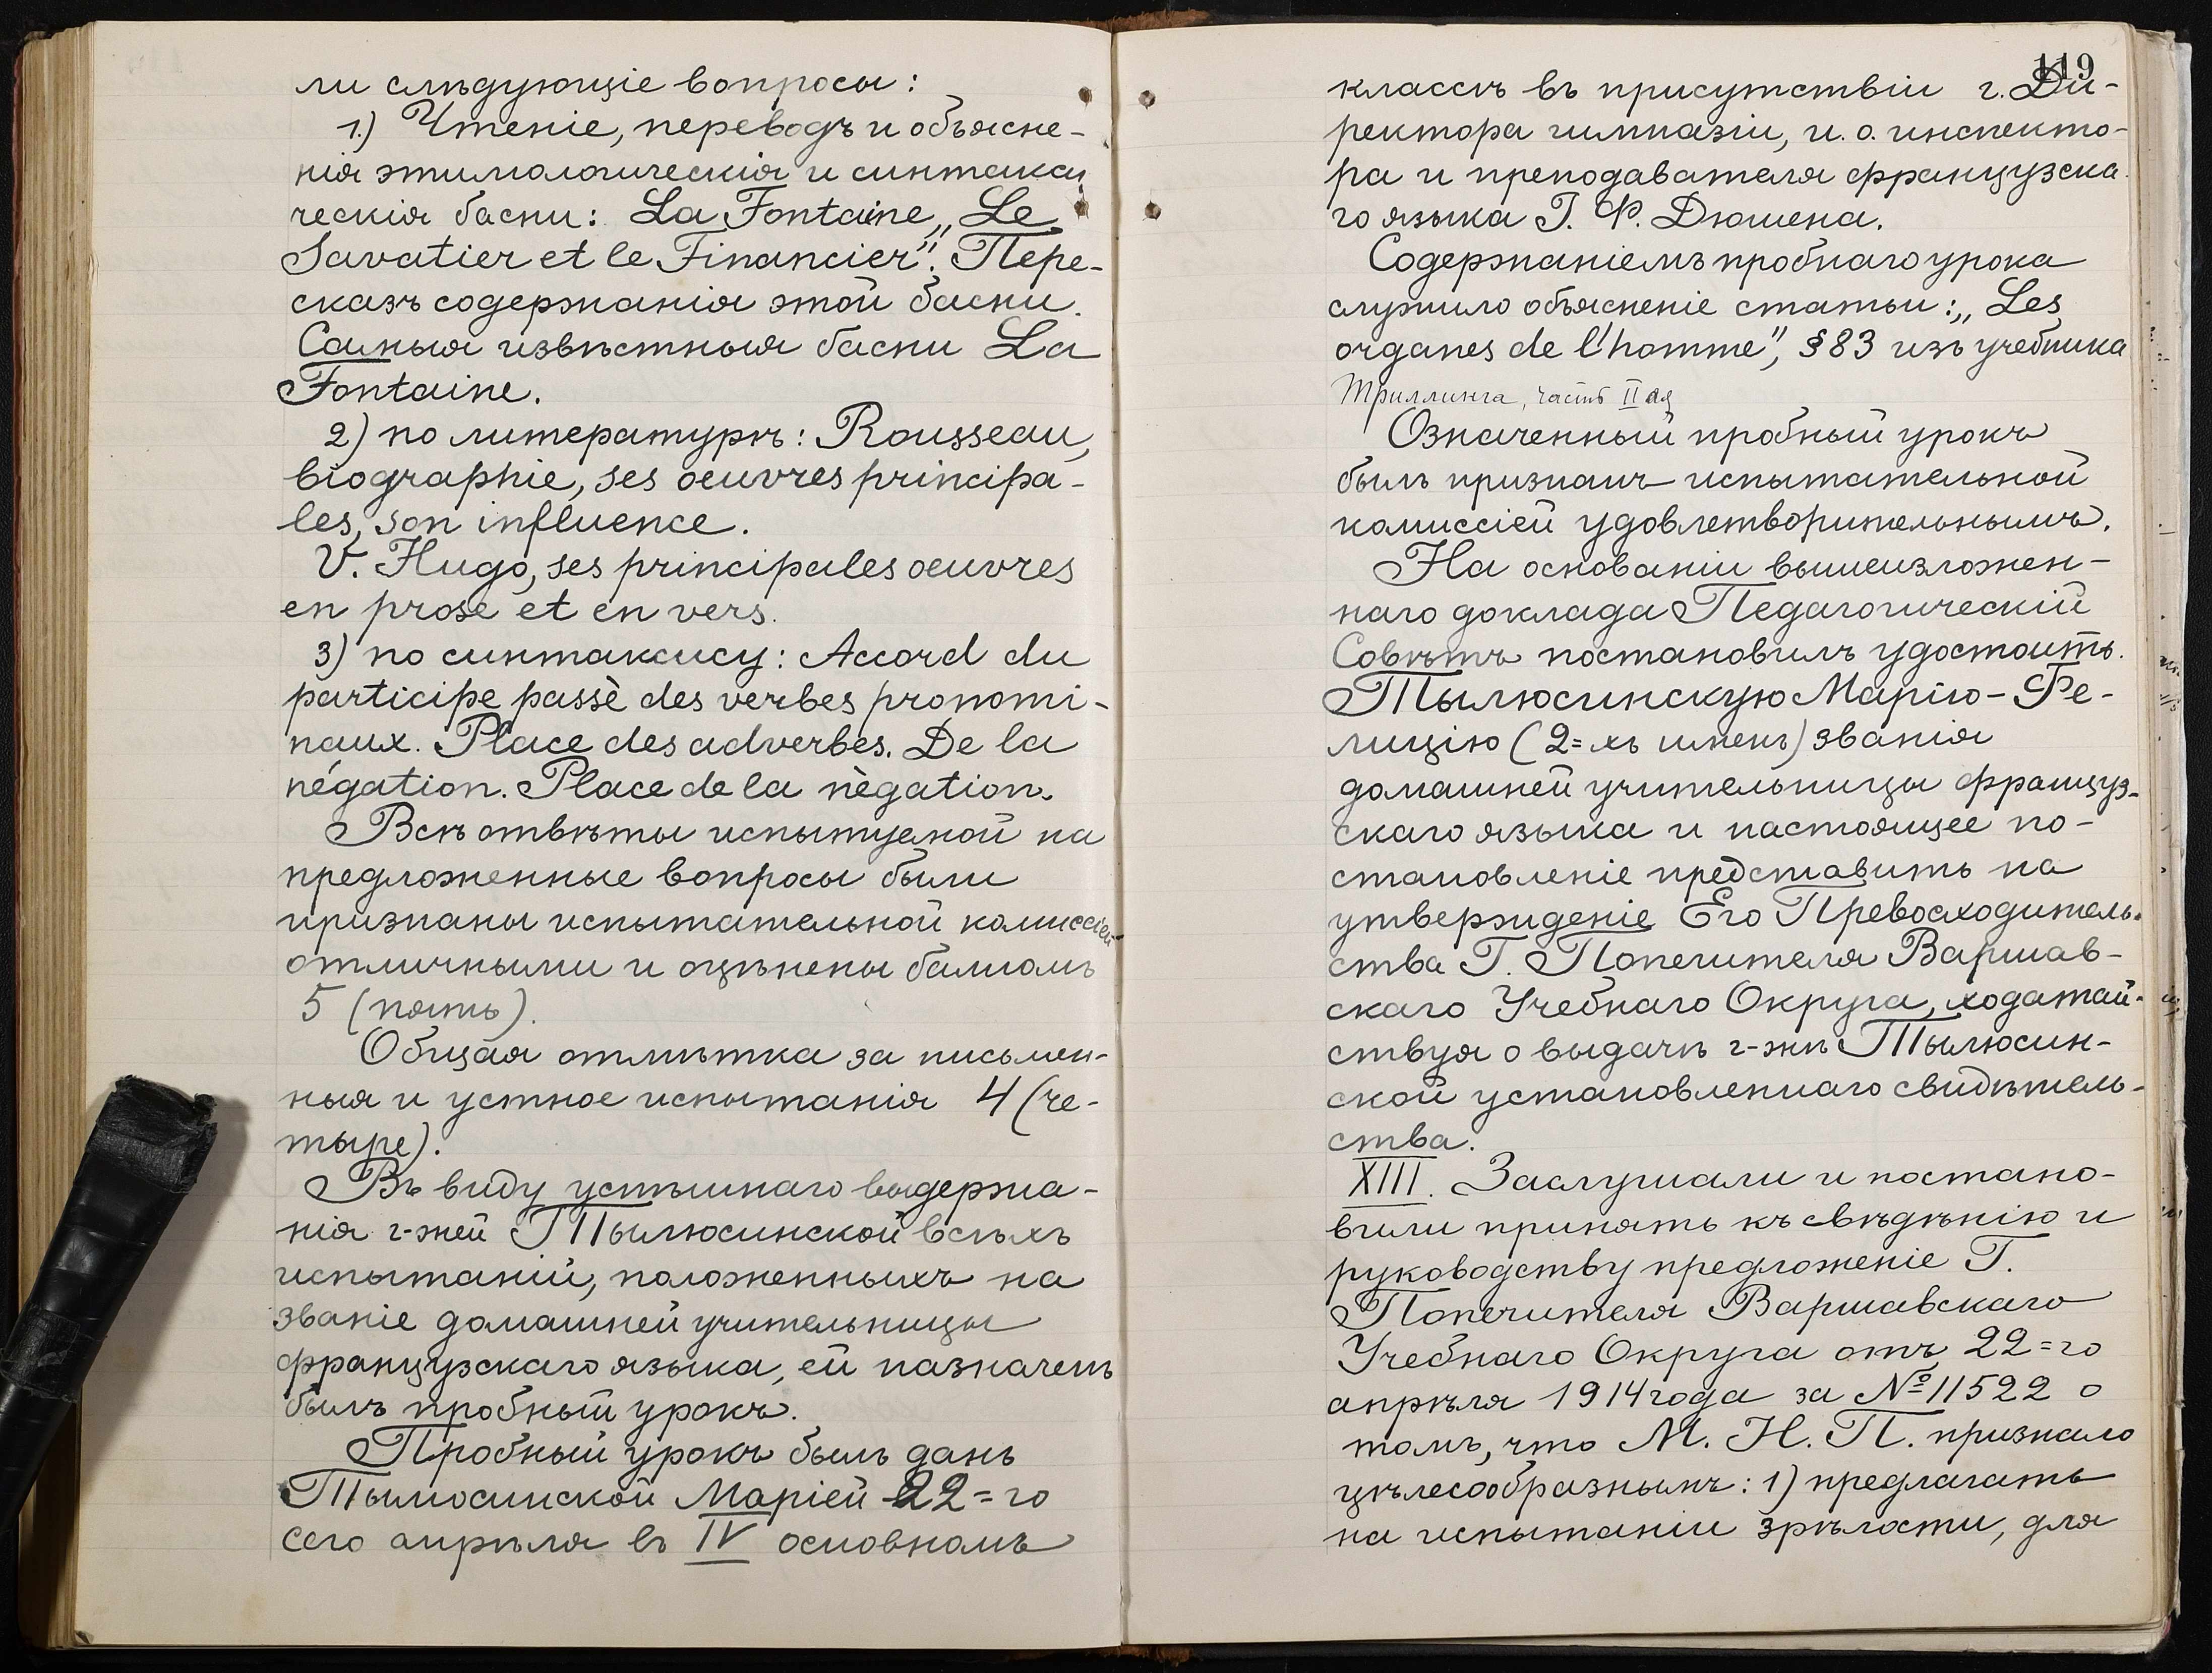 ли слѣдующіе вопросы:
1.) Чтеніе, переводъ и объясне-
нія этимологическія и синтакси
ческія басни: La Fontaine „Le
Savatier et le Financier". Пере-
сказъ содержанія этой басни.
Самыя извѣстныя басни La
Fontaine.
2) по литературѣ: Rousseau,
biographie, ses oeuvres principa-
les, son influence.
V. Hugo, ses principales oeuvres
en prose et en vers.
3) по синтаксису: Accord du
participe passè des verbes pronomi-
naux. Place des adverbes. De la
négation. Place de la nègation.
Всѣ отвѣты испытуемой на
предложенные вопросы были
признаны испытательной комиссіей
отличными и оцѣнены балломъ
5 (пять).
Общая отмѣтка за письмен-
ныя и устное испытанія 4 (че-
тыре).
Въ виду успѣшнаго выдержа-
нія г-жей Тылюсинской всѣхъ
испытаній, положенныхъ на
званіе домашней учительницы
французскаго языка, ей назначенъ
былъ пробный урокъ.
Пробный урокъ былъ данъ
Тылюсинской Маріей 22=го
сего апрѣля въ IV основномъ
119
классѣ въ присутствіи г. Ди-
ректора гимназіи, и. о. инспекто-
ра и преподавателя французска
го языка Г. Ф. Дюшена.
Содержаніемъ пробнаго урока
служило объясненіе статьи: „Les
organes de l'homme", §83 изъ учебника
Триллинга, часть II ая
Означенный пробный урокъ
былъ признанъ испытательной
комиссіей удовлетворительнымъ.
На основаніи вышеизложен-
наго доклада Педагогическій
Совѣтъ постановилъ удостоить
Тылюсинскую Марію-Фе-
лицію (2=хъ именъ) званія
домашней учительницы француз-
скаго языка и настоящее по-
становленіе представить на
утвержденіе Его Превосходитель-
ства Г. Попечителя Варшав-
скаго Учебнаго Округа, ходатай-
ствуя о выдачѣ г-жѣ Тылюсин-
ской установленнаго свидѣтель-
ства.
XIII. Заслушали и постано-
вили принять къ свѣдѣнію и
руководству предложеніе Г.
Попечителя Варшавскаго
Учебнаго Округа отъ 22=го
апрѣля 1914 года за № 11522 о
томъ, что М. Н. П. признало
цѣлесообразнымъ: 1) предлагать
на испытаніи зрѣлости, для